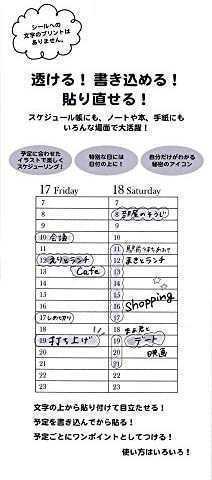 シールへの
文字のプリントは
ありません。
透ける！書き込める！
貼り直せる！
スケジュール帳にも、ノートや本、手紙にも
いろんな場面で大活躍！
予定に合わせた
イラストで楽しく
スケジューリング！
特別な日には
日付の上に！
自分だけがわかる
秘密のアイコン
17 Friday
18 Saturday
7
7
8
8 部屋のそうじ
9
9
10 会議
10
11
11
12 えりとランチ
12 まきとランチ
13 Cafe
13
14
14
15
15
16
16 Shopping
17 しめ切り
17
18
18
19 打ち上げ
19 デート
20
20 映画
21
21
22
22
23
23
文字の上から貼り付けて目立たせる！
予定を書き込んでから貼る！
予定ごとにワンポイントとしてつける！
使い方はいろいろ！